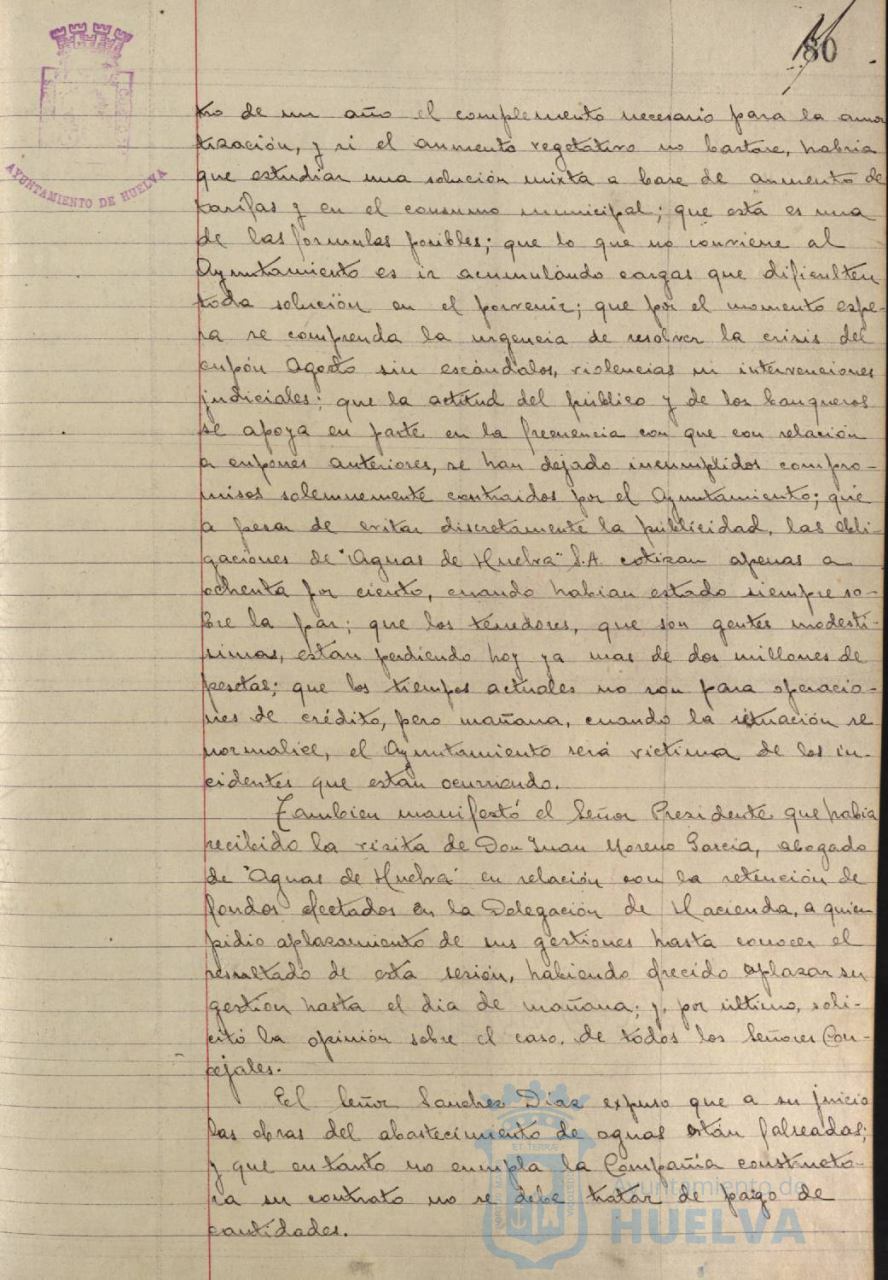 80
AYUNTAMIENTO DE HUELVA
tro de un año el complemento necesario para la amor
tización, y si el aumento vegetativo no bastase, habria
que estudiar una solución mixta a base de aumento de
tarifas y en el consumo municipal; que esta es una
de las formulas posibles; que lo que no conviene al
Ayuntamiento es ir acumulándo cargas que dificulten
toda solución en el porvenir; que por el momento espe-
ra se comprenda la urgencia de resolver la crisis del
cupón Agosto sin escándalos, violencias ni intervenciones
judiciales; que la actitud del público y de los banqueros
se apoya en parte en la frecuencia con que con relación
a cupones anteriores, se han dejado incumplidos compro-
misos solemnemente contraidos por el Ayuntamiento; que
a pesar de evitar discretamente la publicidad, las obli-
gaciones de "Aguas de Huelva" S.A. cotizan apenas a
ochenta por ciento, cuando habian estado siempre so-
bre la par; que los tenedores, que son gentes modestí-
simas, estan perdiendo hoy ya mas de dos millones de
pesetas; que los tiempos actuales no son para operacio-
nes de crédito, pero mañana, cuando la situación se
normalice, el Ayuntamiento será victima de los in-
cidentes que están ocurriendo.
Tambien manifestó el Señor Presidente que habia
recibido la visita de Don Juan Moreno Garcia, abogado
de "Aguas de Huelva" en relación con la retención de
fondos afectados en la Delegación de Hacienda, a quien
pidio aplazamiento de sus gestiones hasta conocer el
resultado de esta sesión, habiendo ofrecido aplazar su
gestion hasta el dia de mañana; y, por último, soli-
citó la opinión sobre el caso, de todos los Señores Con-
cejales.
El Señor Sanchez Diaz expuso que a su juicio
las obras del abastecimiento de aguas están falseadas;
y que en tanto no cumpla la Compañia constructo-
ra su contrato no se debe tratar de pago de
cantidades.
Ayuntamiento de
HUELVA